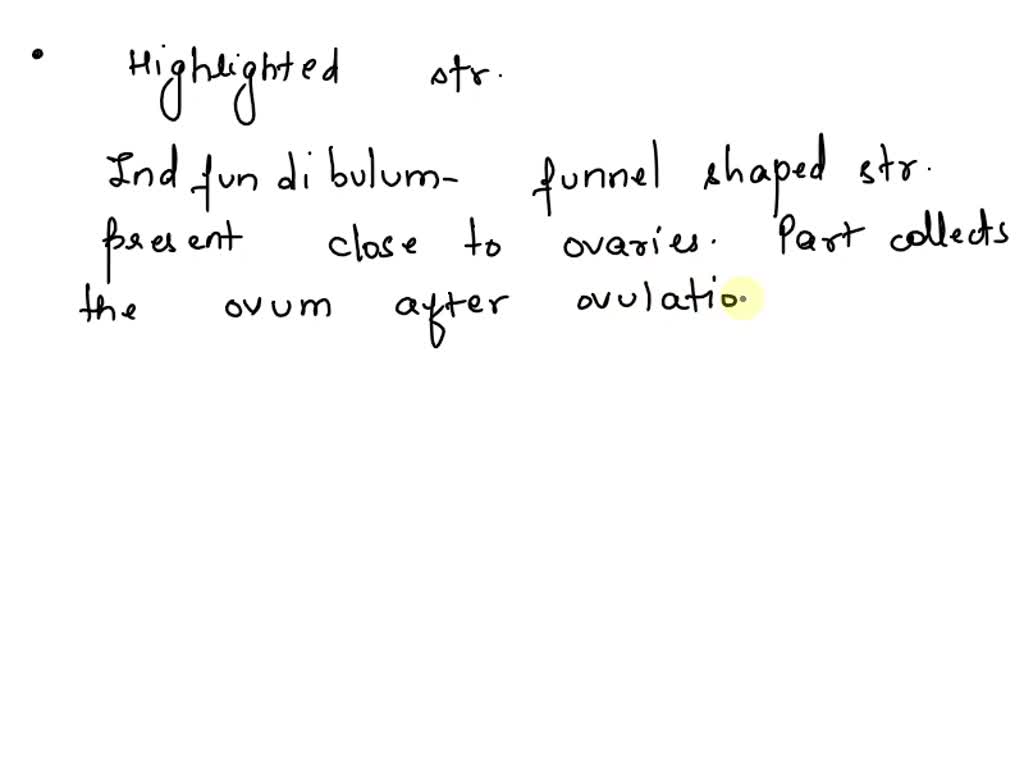 • Highlighted str.
Indfundibulum- funnel shaped str.
present close to ovaries. Part collects
the ovum after ovulatio